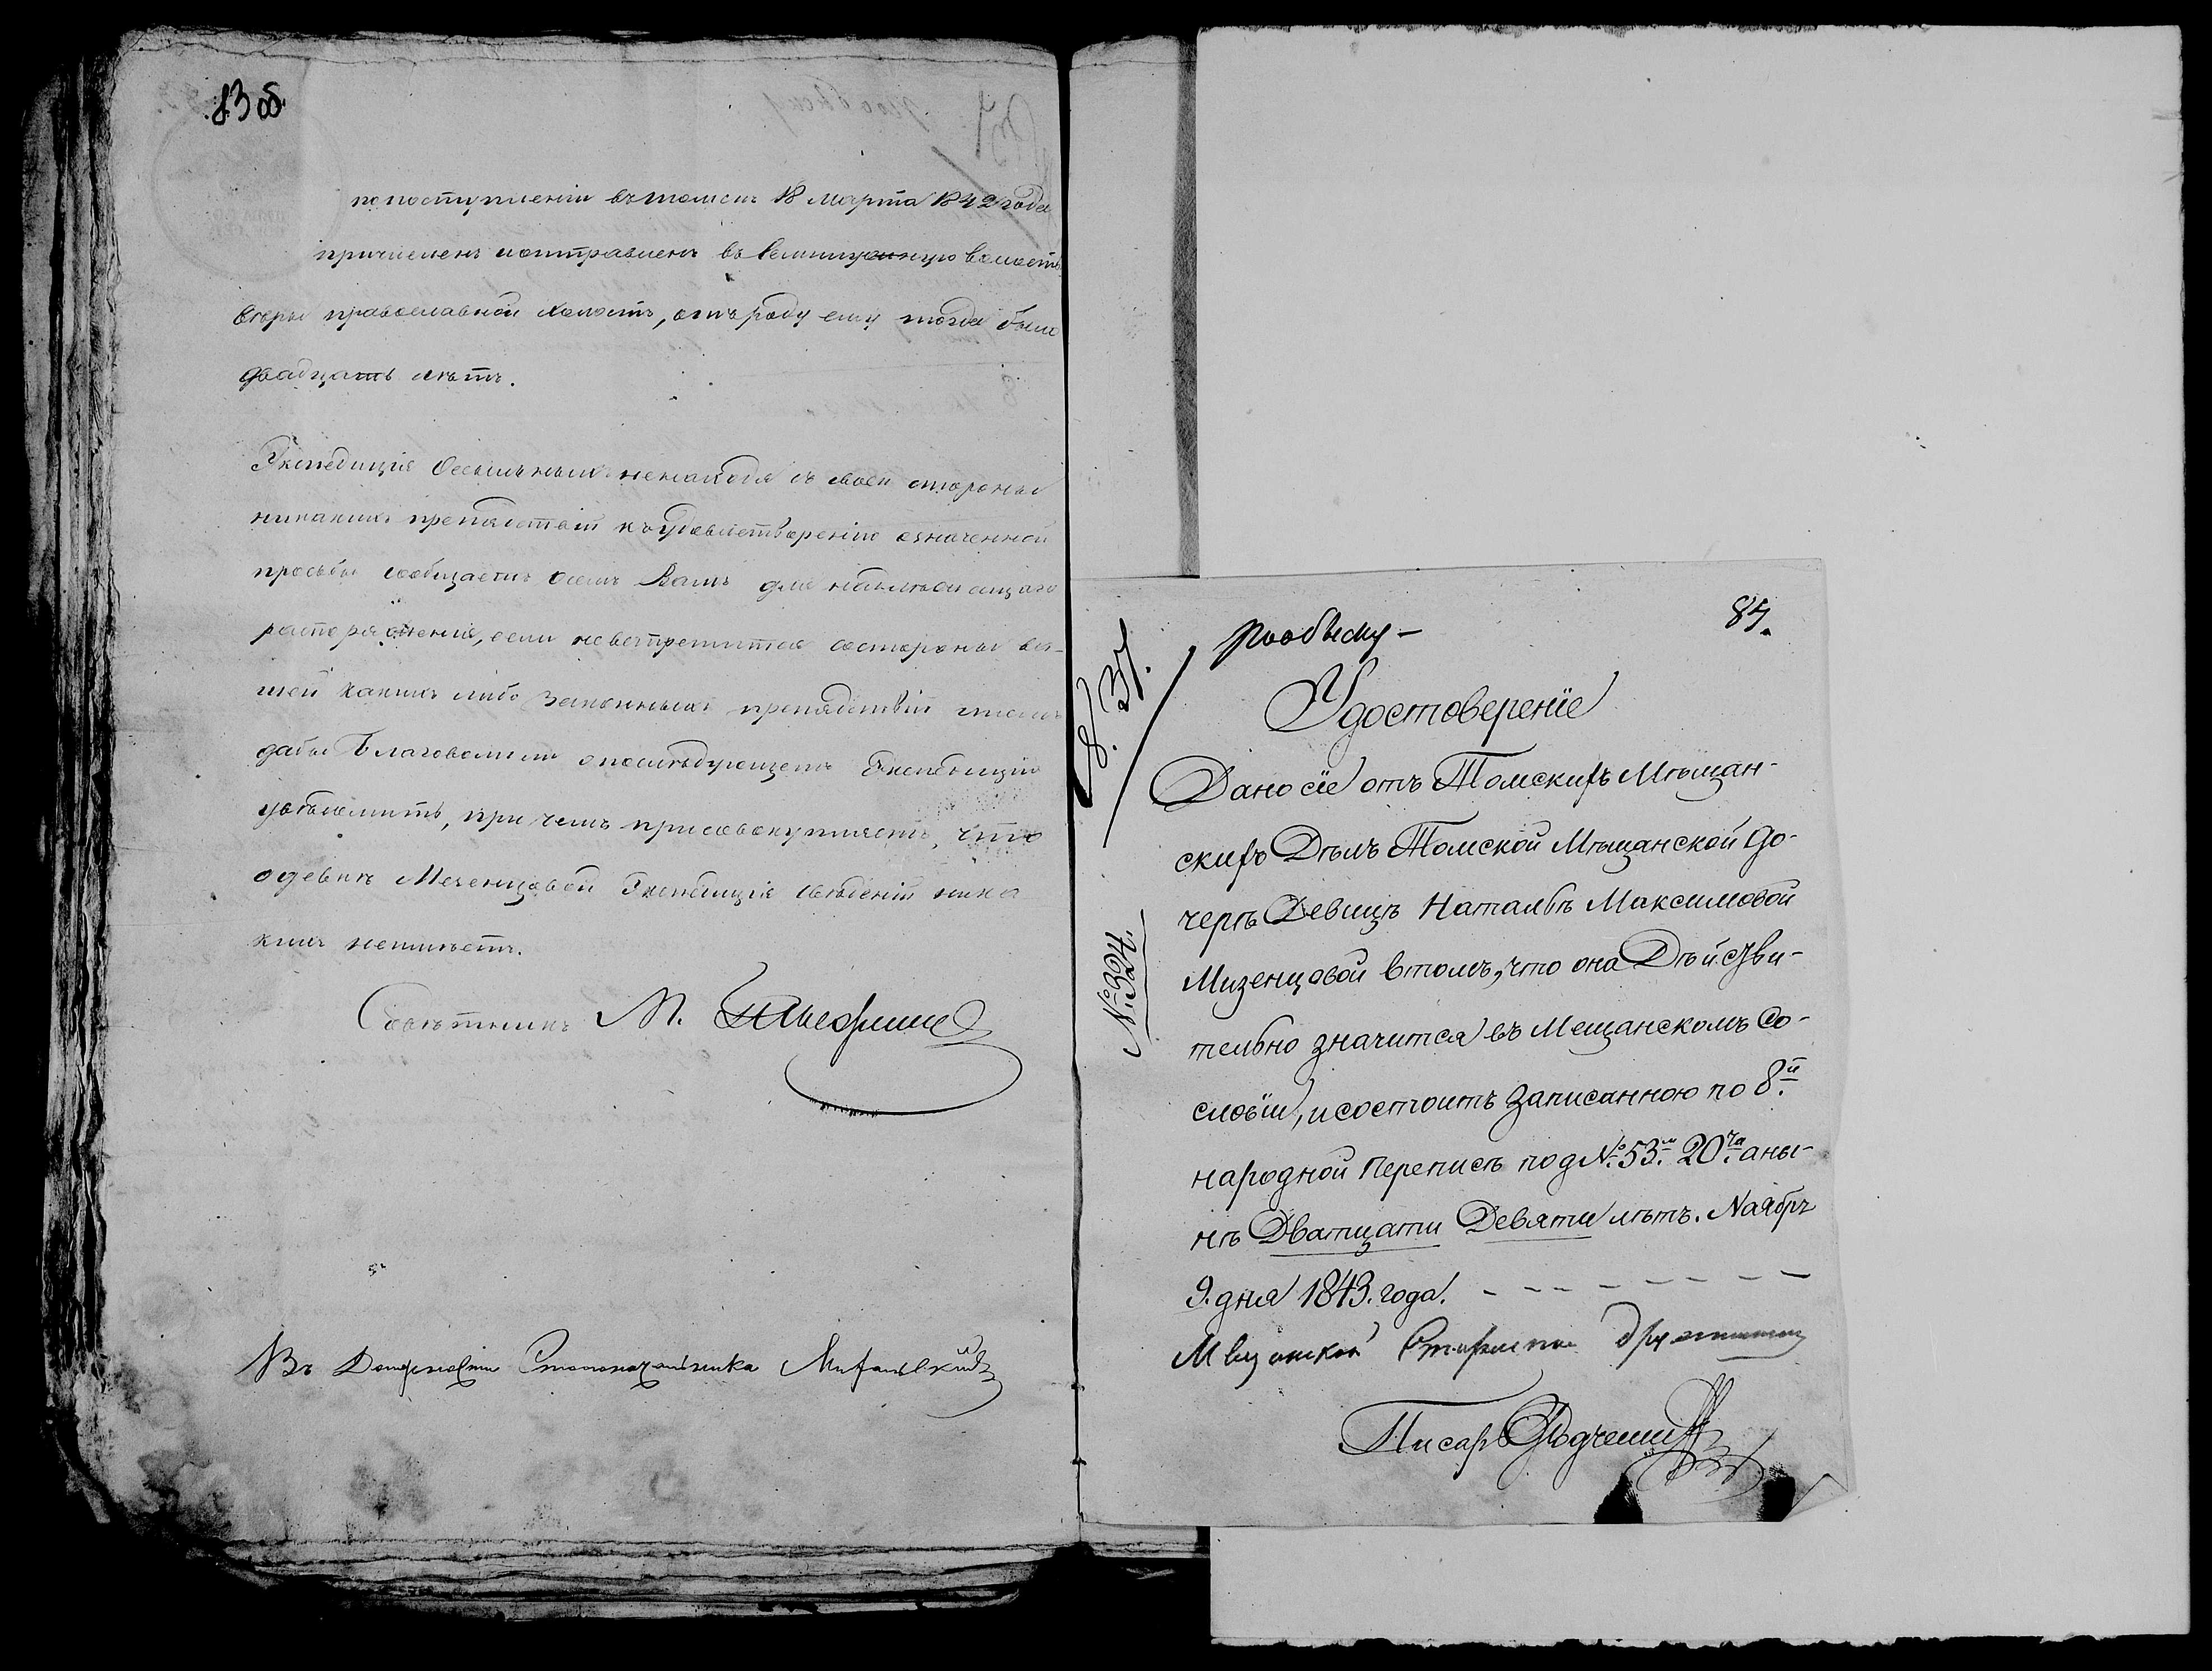 83 об.
по поступлении въ томскъ 18 марта 1842 года
причисленъ и отправленъ въ волость
веры православной холостъ, отъ роду ему тогда было
двадцать летъ.
Экспедиція Ссыльныхъ ненаходя съ своей стороны
никакихъ препятствій къ удовлетворенію означенной
просьбы сообщаетъ о семъ Вамъ для надлежащаго
распоряженія, если невстретится состороны ва-
шей какихъ либо законныхъ препятствій
дабы Благоволили опоследующемъ Экспедицію
уведомить, при чемъ присовокупляетъ, что
одевке Мезенцовой Экспедиція сведеній ника
кихъ неимеетъ.
Советникъ М.
Въ Должности Столоначальника
84.
къ обыску –
8. 37.
№ 324.
Удостоверенiе
Дано сiе отъ Томскихъ Мѣщан-
скихъ Дѣлъ Томской Мѣщанской до-
черѣ Девицѣ Натальѣ Максимовой
Мизенцовой втомъ, что она Дѣйстви-
тельно значится въ Мещанскомъ Со-
словiи, и состоитъ записанною по 8й
народной переписѣ под № 53м 20ча аны-
нѣ Дватцати Девяти лѣтъ. Ноября
9. дня 1843. года.
Мещанской Староста
Писарь